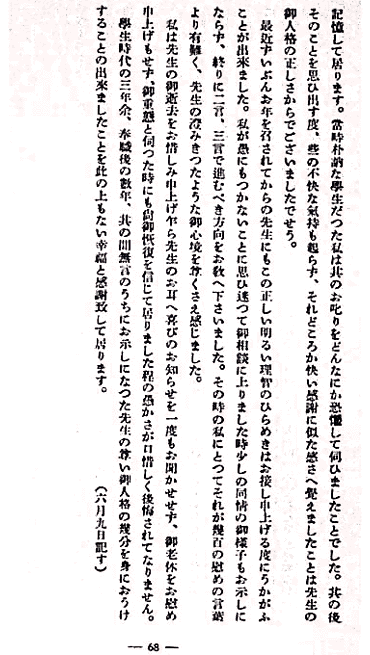 記憶して居ります。當時朴訥な學生だつた私は其のお叱りをどんなにか恐懼して伺ひましたことでした。其の後
そのことを思ひ出す度、些の不快な氣持も起らず、それどころか快い感謝に似た感さへ覺えましたことは先生の
御人格の正しさからでございましたでせう。
最近ずいぶんお年を召されてからの先生にもこの正しい明るい理智のひらめきはお接し申上げる度にうかがふ
ことが出來ました。私が愚にもつかないことに思ひ迷つて御相談に上りました時少しの同情の御樣子もお示しに
ならず、終りに二言、三言で進むべき方向をお敎へ下さいました。その時の私にとつてそれが幾百の慰めの言葉
より有難く、先生の澄みきつたような御心境を尊くさえ感じました。
私は先生の御逝去をお惜しみ申上げ乍ら先生のお耳へ喜びのお知らせを一度もお聞かせせず、御老休をお慰め
申上げもせず、御重態と伺つた時にも尙御恢復を信じて居りました程の愚かさが口惜しく後悔されてなりません。
學生時代の三年余、奉職後の數年、其の間無言のうちにお示しになつた先生の尊い御人格の幾分を身におうけ
することの出來ましたことを此の上もない幸福と感謝致して居ります。
(六月九日記す)
— 68 —